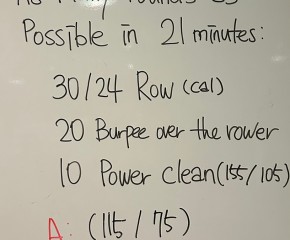 Possible in 21 minutes:
30/24 Row (cal)
20 Burpee over the rower
10 Power clean (155/105)
A: (115/75)